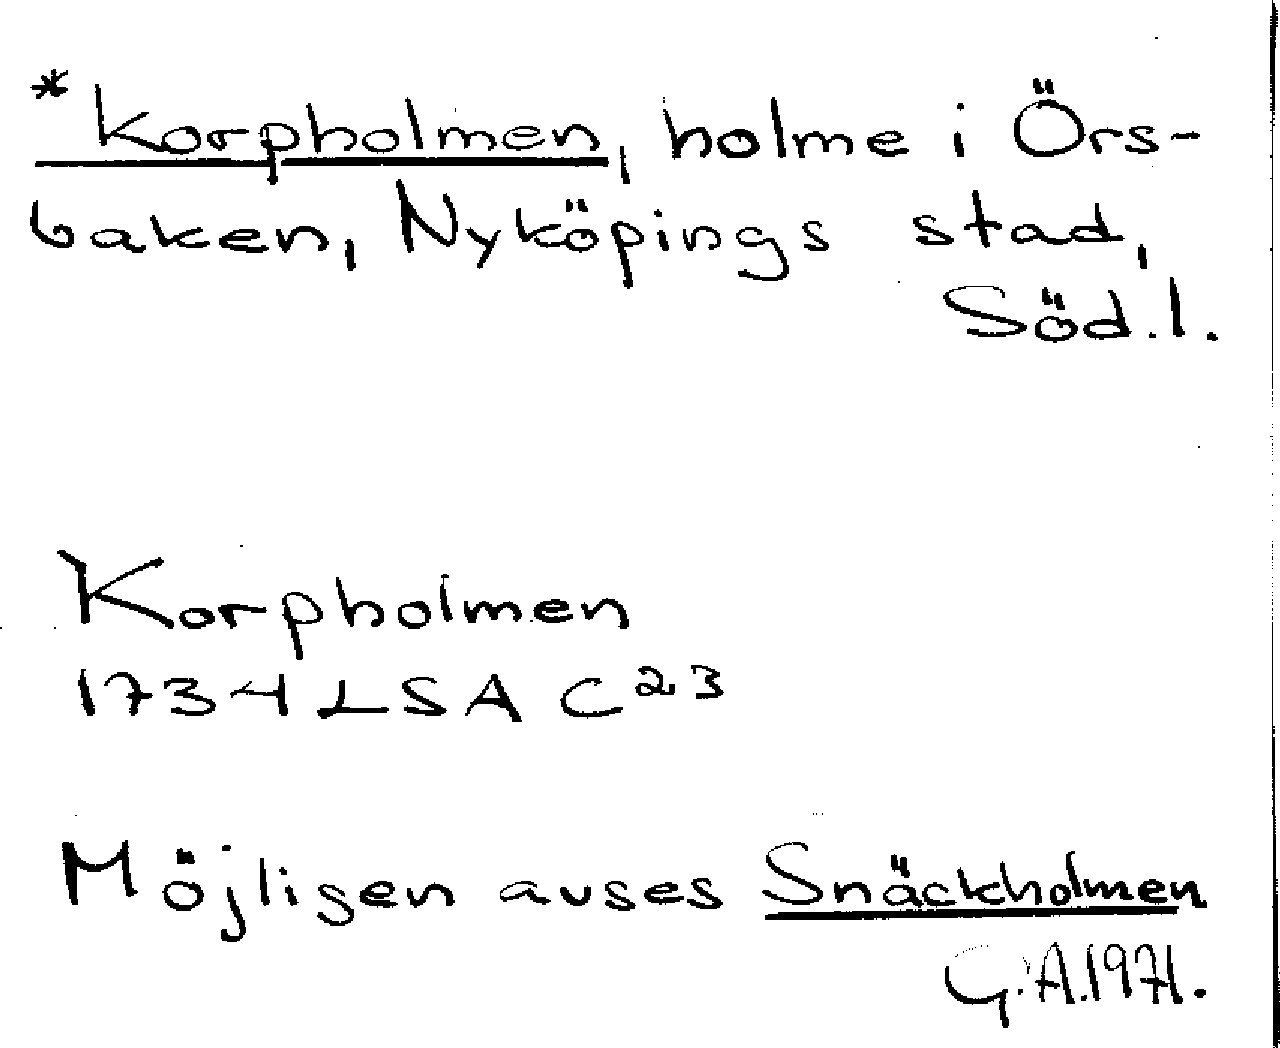 *Korpholmen, holme i Örs-
baken, Nyköpings stad,
Söd.l.
Korpholmen
1734 LSA C23
Möjligen avses Snäckholmen
G.A.1971.